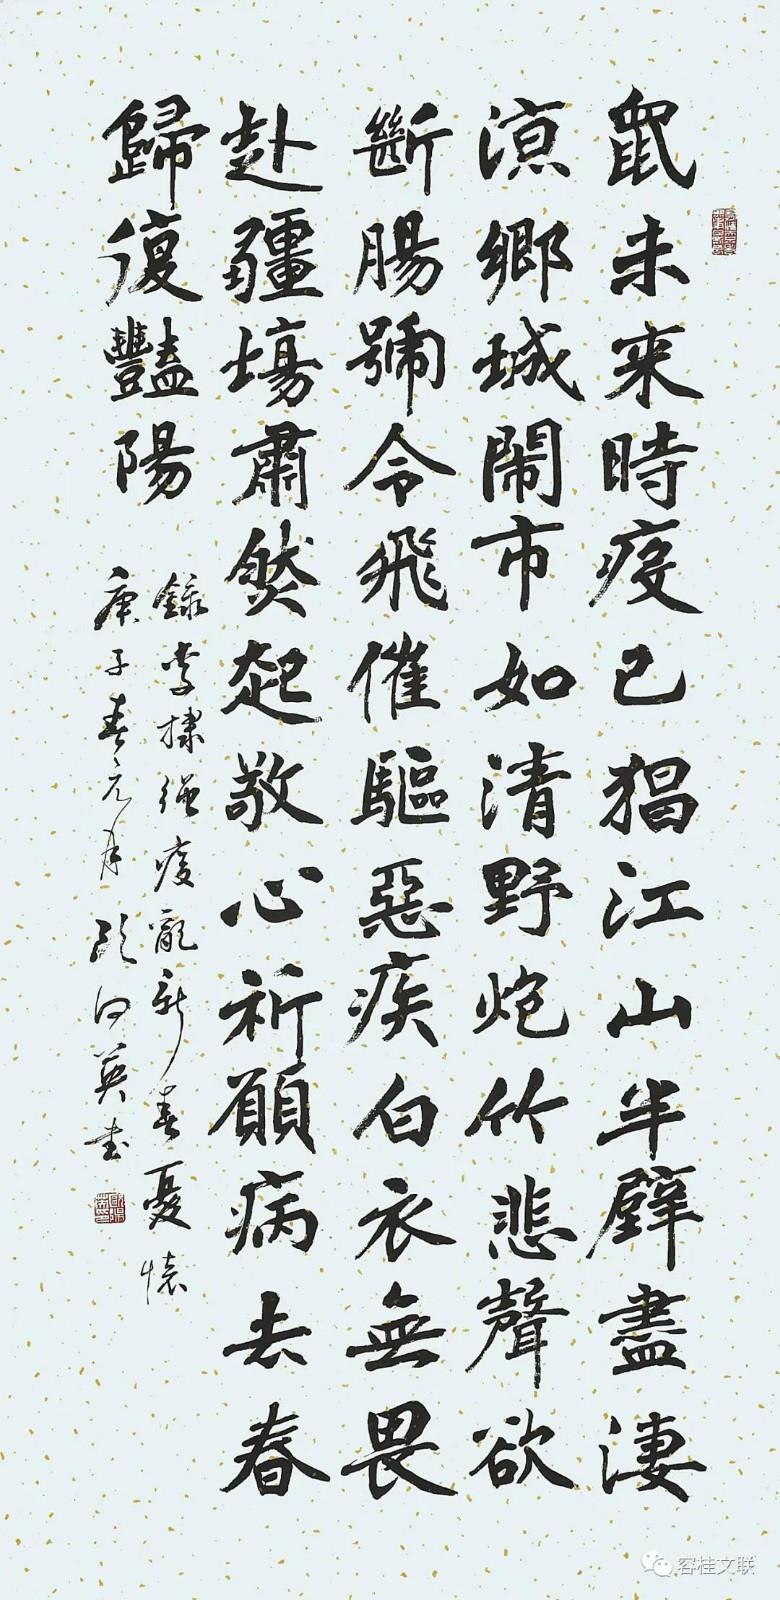 鼠未來時疫已猖江山半壁盡淒
涼鄉城鬧市如清野炮竹悲聲欲
斷腸號令飛催驅惡疾白衣無畏
赴疆塲肅然起敬心祈願病去春
歸復豔陽
録李棣强疫亂新春憂懷
庚子春元月欧向英書
容桂文联